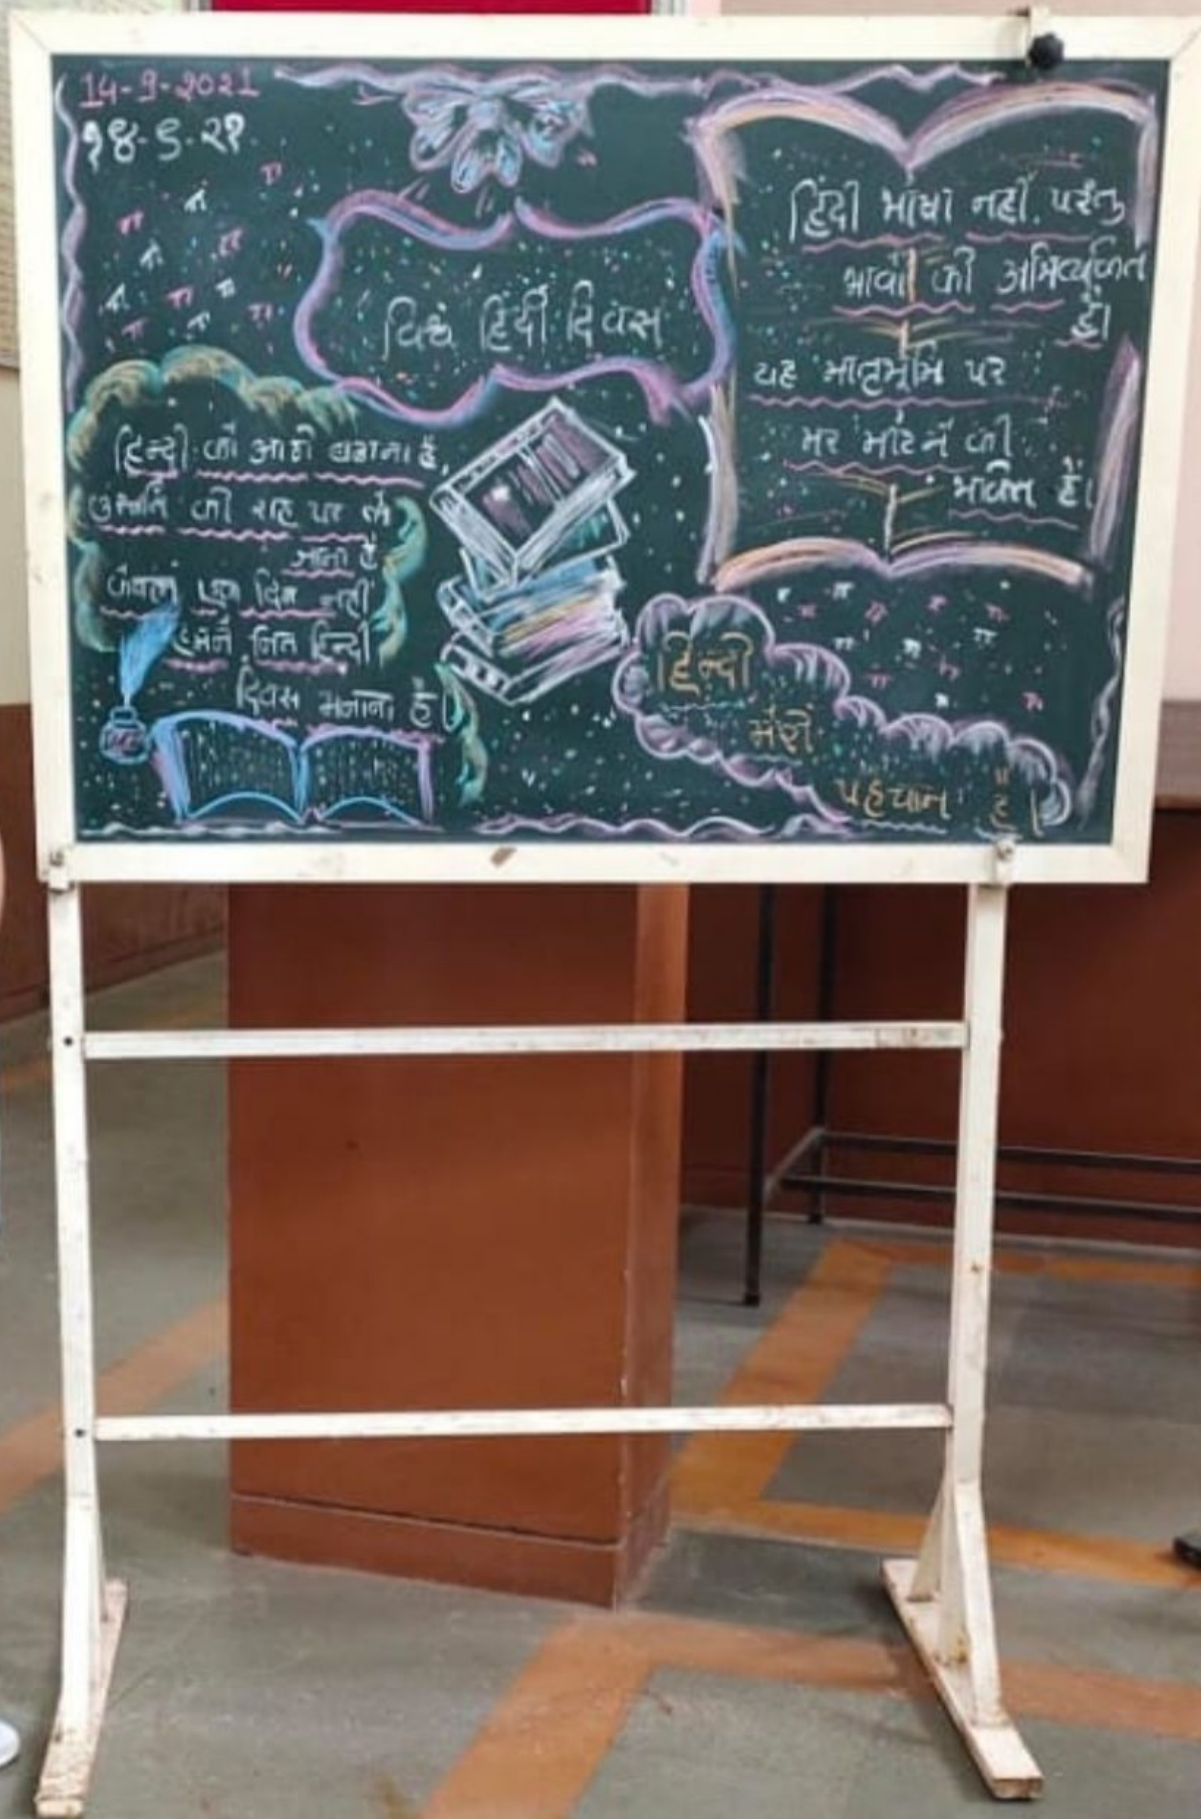 14-9-2021
१४-९-२१
विश्व हिंदी दिवस
हिंदी भाषा नहीं, परंतु
भावों की अभिव्यक्ति
है।
यह मातृभूमि पर
मर मिटने की
भक्ति हैं।
हिन्दी को आगे बढ़ाना है,
उन्नति की राह पर ले
जाना है
केवल एक दिन नहीं
हमने नित हिन्दी
दिवस मनाना है।
हिन्दी
मेरी
पहचान है।